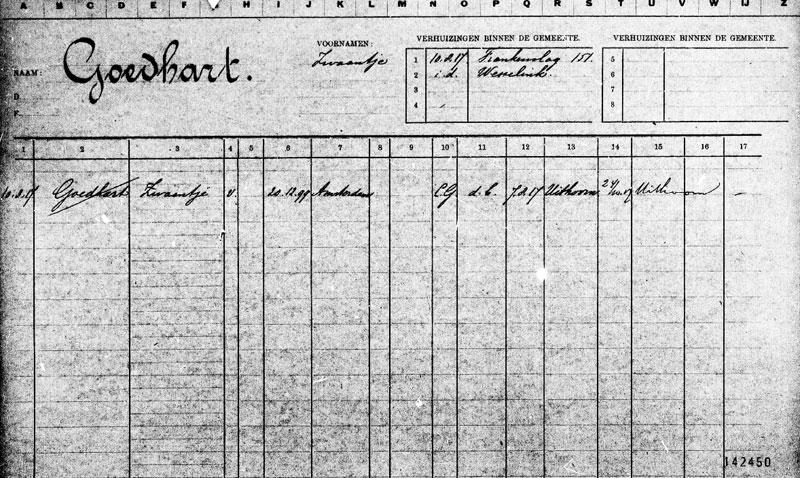 A B C D E F G H I J K L M N O P Q R S T U V W IJ Z
NAAM: Goedhart.
D
F
VOORNAMEN:
Zwaantje
VERHUIZINGEN BINNEN DE GEMEENTE.
1 10.2.17 Frankenslag 151.
2 i.d. Wesselink.
3
4
VERHUIZINGEN BINNEN DE GEMEENTE.
5
6
7
8
1 2 3 4 5 6 7 8 9 10 11 12 13 14 15 16 17
10.2.17 Goedhart Zwaantje v. 20.12.99 Amsterdam C.G. d.b. 7.2.17 Uithoorn Uithoorn —
142450